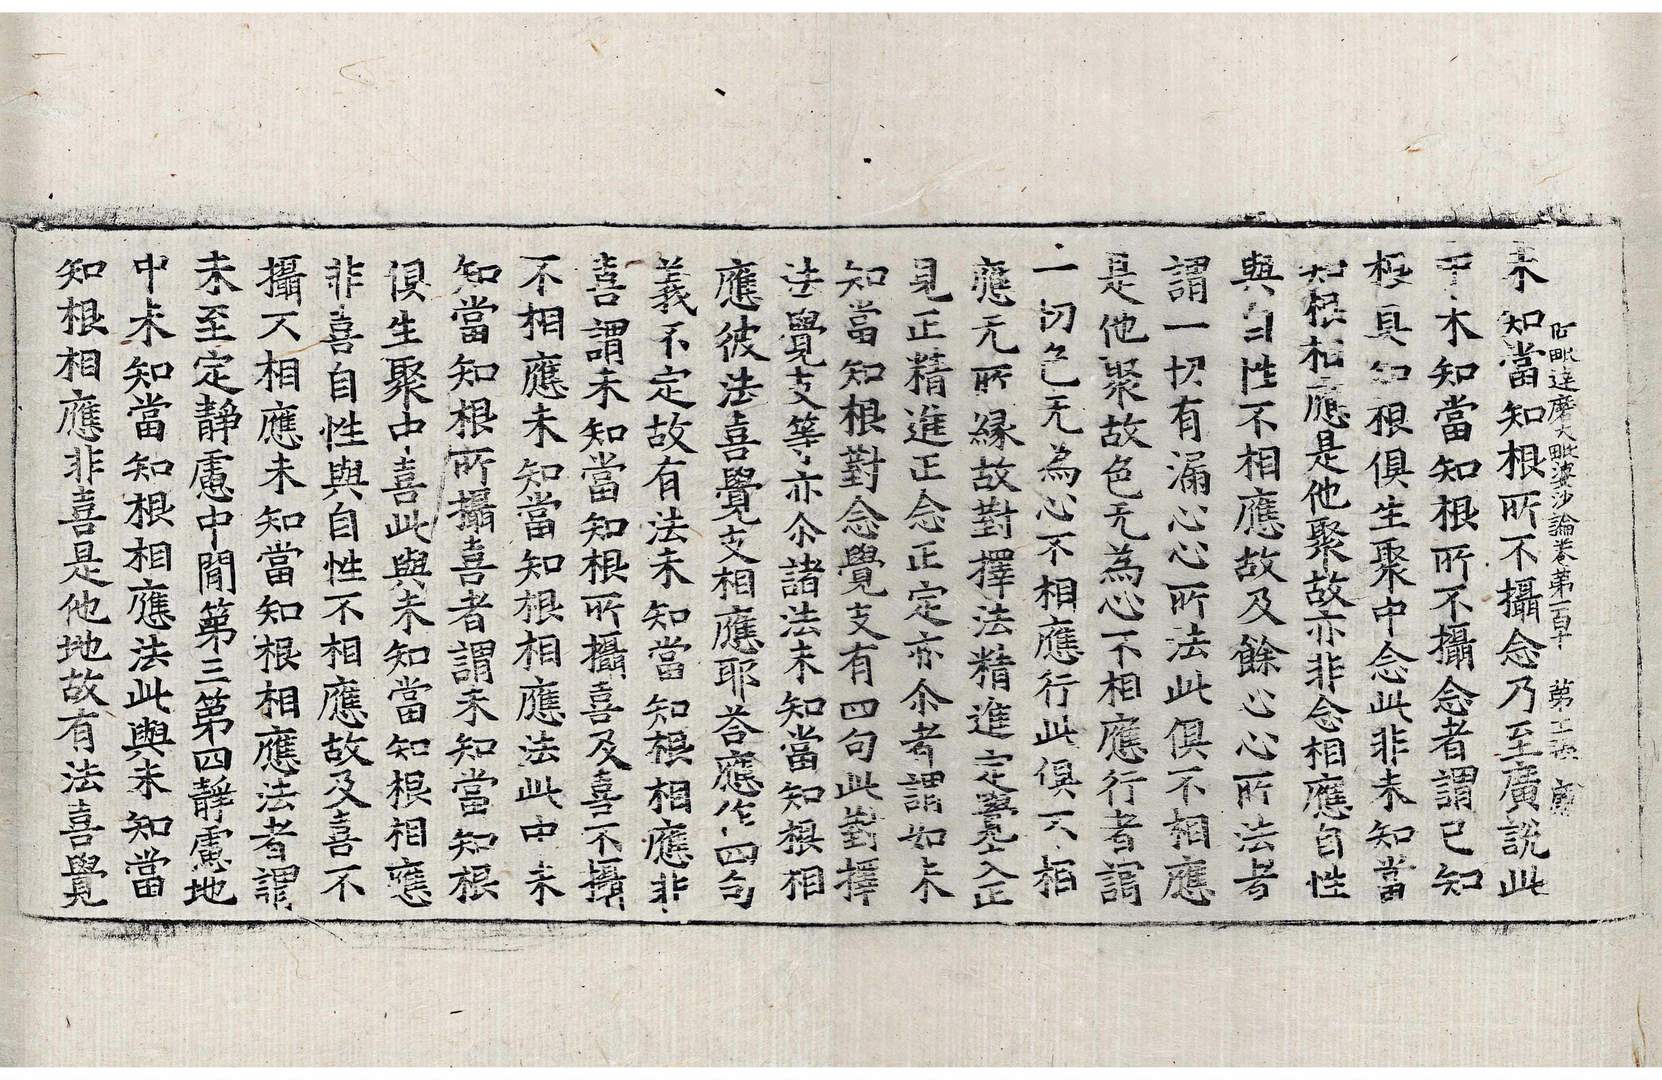 未知當知根所不攝念乃至廣說此
阿毗達磨大毗婆沙論卷第一百十 第二張 廉
中未知當知根所不攝念者謂已知
極具知根俱生聚中念此非未知當
知根相應是他聚故亦非念相應自性
與自性不相應故及餘心心所法者
謂一切有漏心心所法此俱不相應
是他聚故色无為心不相應行者謂
一切色无為心不相應行此俱不相
應无所縁故對擇法精進定覺支正
見正精進正念正定亦尒者謂如未
知當知根對念覺支有四句此對擇
法覺支等亦尒諸法未知當知根相
應彼法喜覺支相應耶荅應作四句
義不定故有法未知當知根相應非
喜謂未知當知根所攝喜及喜不攝
不相應未知當知根相應法此中未
知當知根所攝喜者謂未知當知根
俱生聚中喜此與未知當知根相應
非喜自性與自性不相應故及喜不
攝不相應未知當知根相應法者謂
未至定靜慮中閒第三第四靜慮地
中未知當知根相應法此與未知當
知根相應非喜是他地故有法喜覺